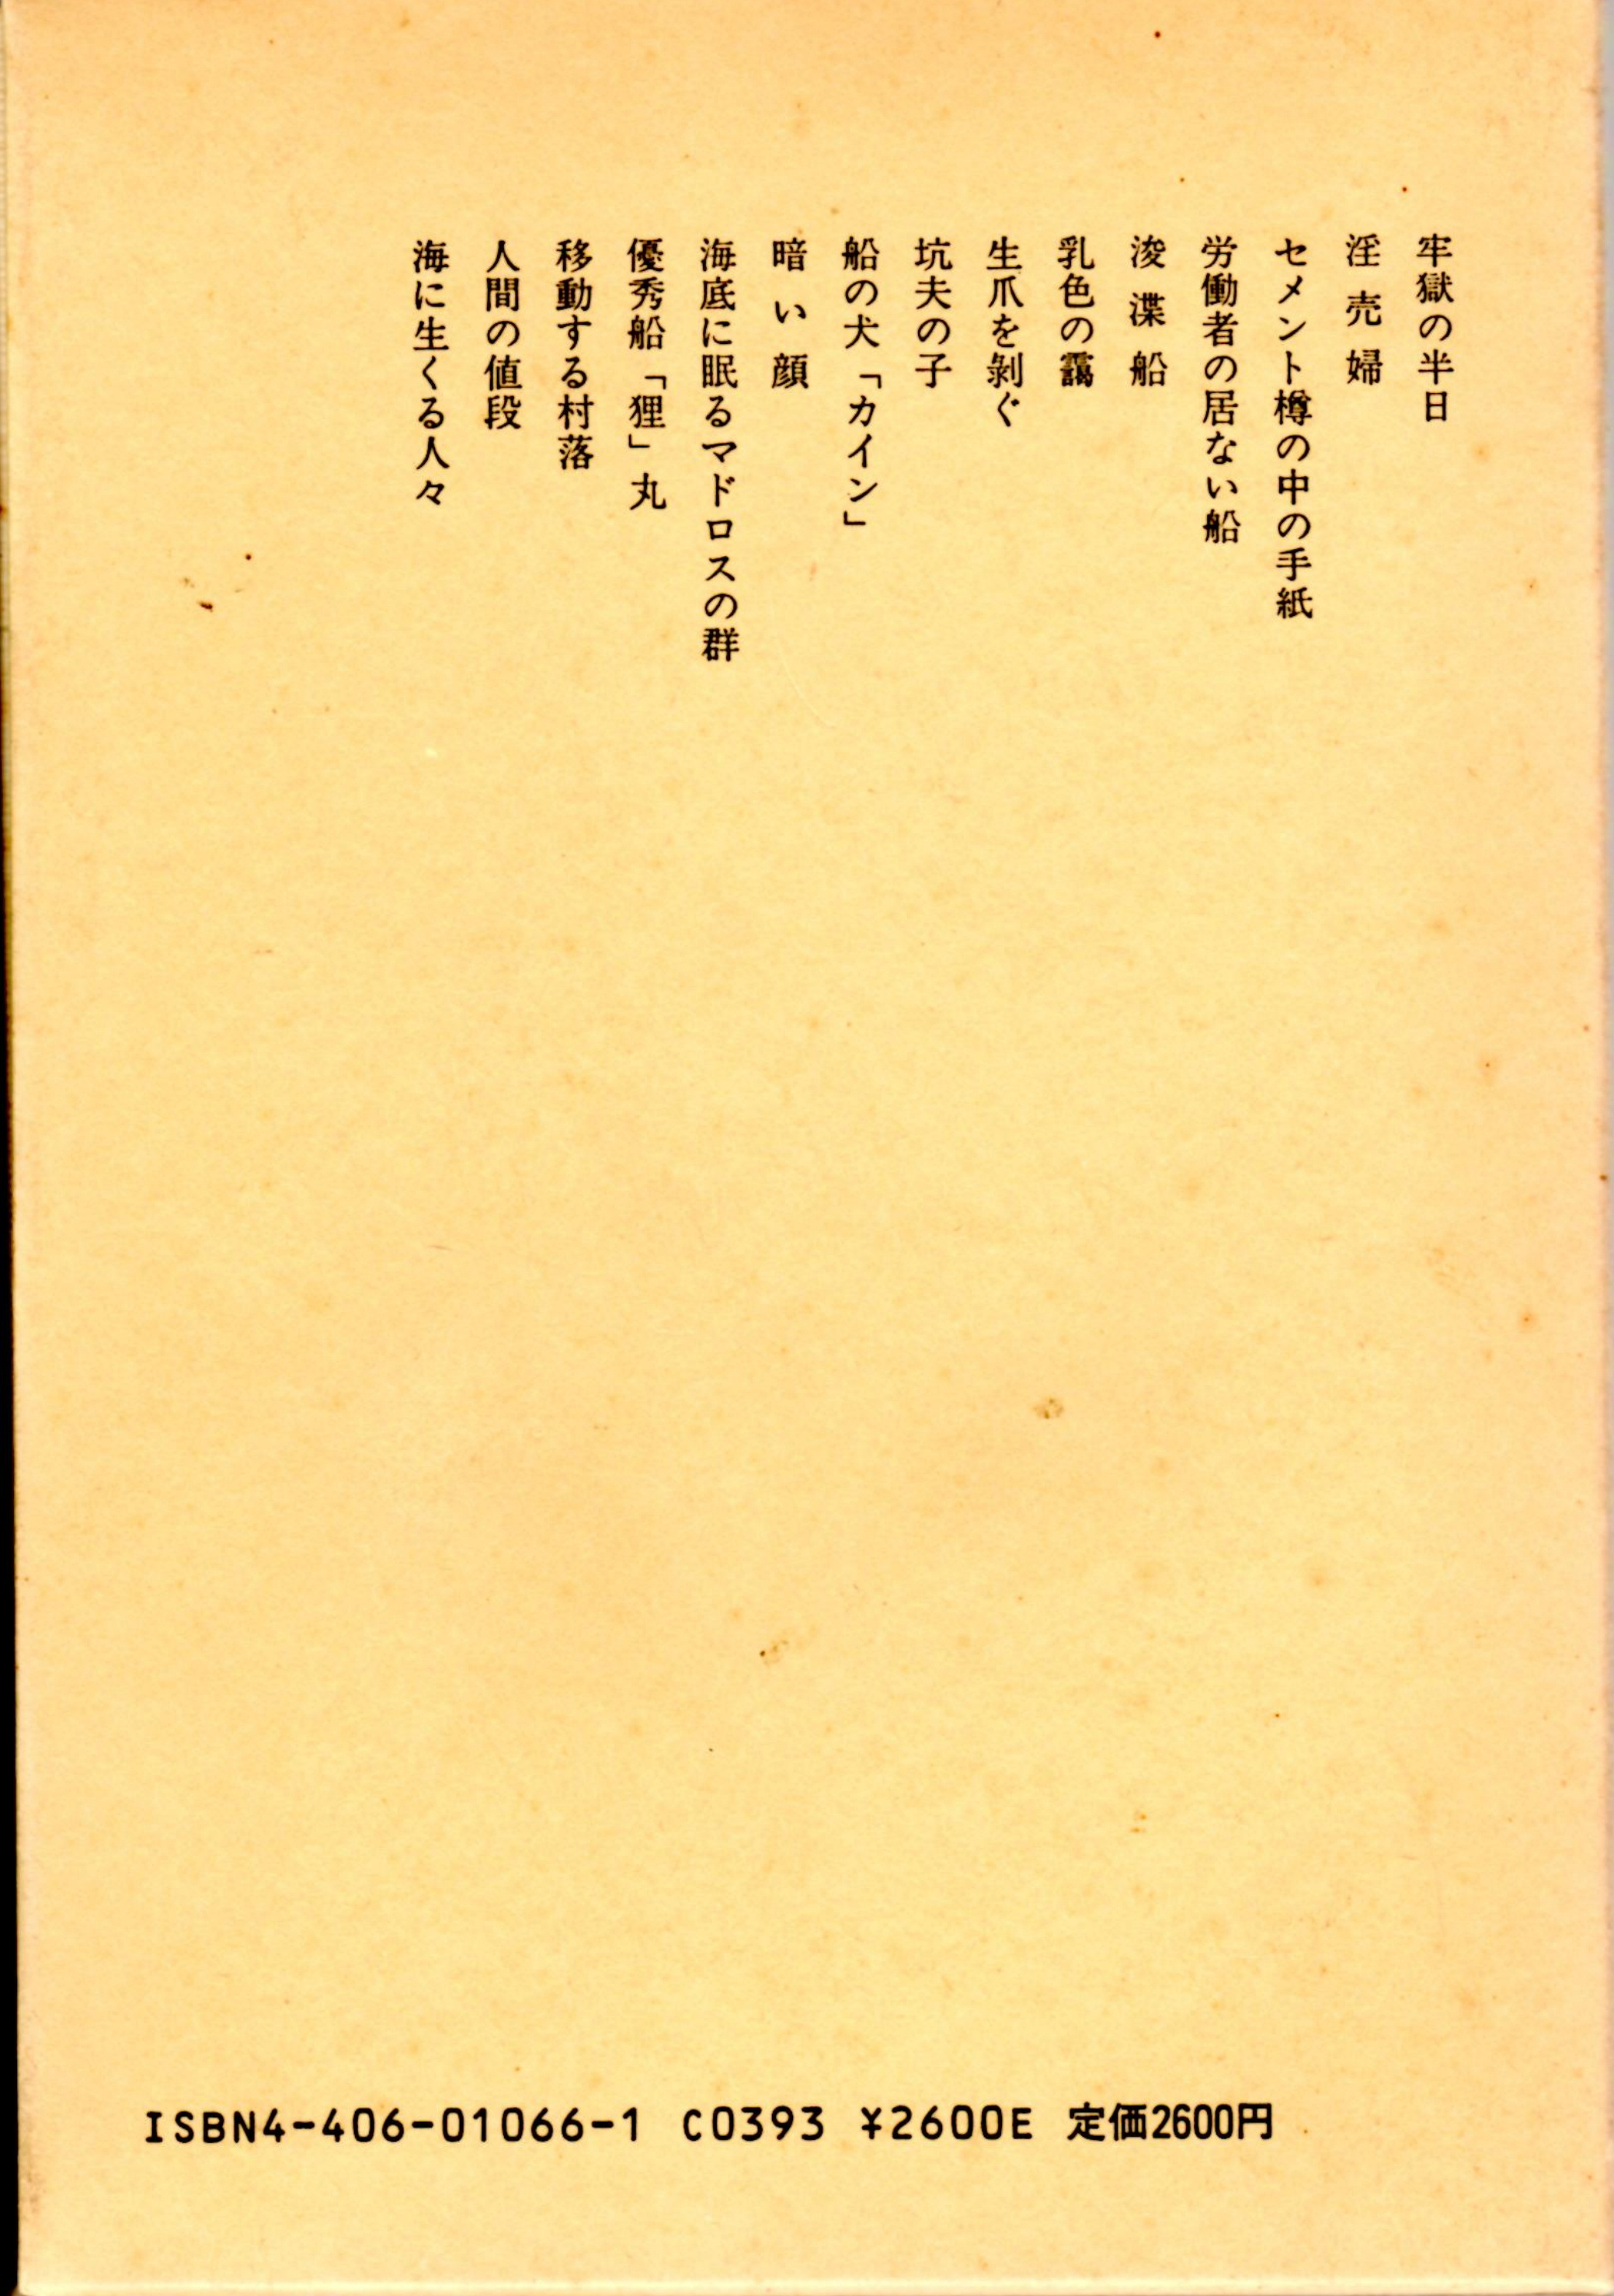 牢獄の半日
淫売婦
セメント樽の中の手紙
労働者の居ない船
浚渫船
乳色の靄
生爪を剝ぐ
坑夫の子
船の犬「カイン」
暗い顔
海底に眠るマドロスの群
優秀船「狸」丸
移動する村落
人間の値段
海に生くる人々
ISBN4-406-01066-1 C0393 ¥2600E 定価2600円